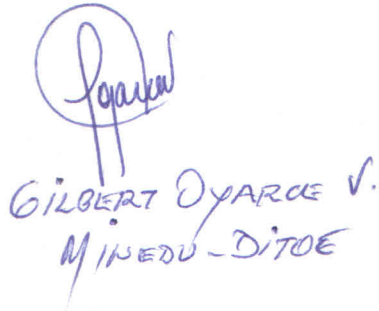 GILBERT OYARCE V.
MINEDU-DITOE